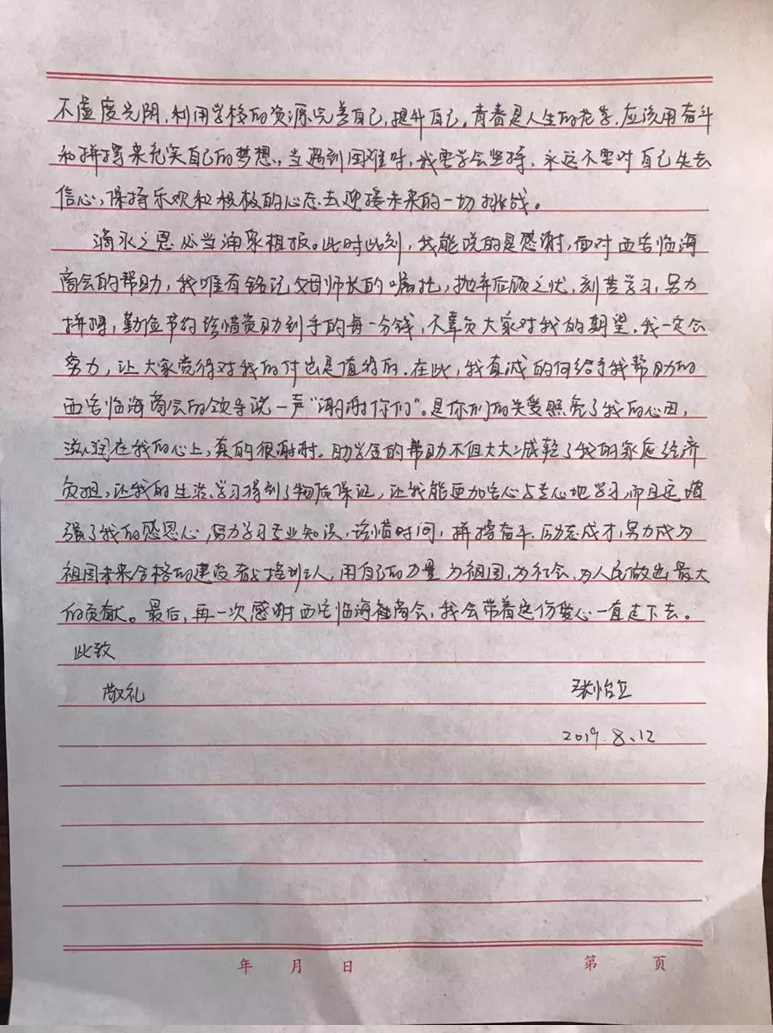 不虚度光阴，利用学校的资源完善自己，提升自己。青春是人生的花季，应该用奋斗
和拼搏来充实自己的梦想，当遇到困难时，我要学会坚持，永远不要对自己失去
信心，保持乐观和积极的心态去迎接未来的一切挑战。
滴水之恩必当涌泉相报。此时此刻，我能说的是感谢，面对西宅临海
商会的帮助，我唯有铭记父母师长的嘱托，抛弃后顾之忧，刻苦学习，努力
拼搏，勤俭节约珍惜资助到手的每一分钱，不辜负大家对我的期望。我一定会
努力，让大家觉得对我的付出是值得的。在此，我真诚的向给予我帮助的
西宅临海商会的领导说一声“谢谢你们”。是你们的关爱照亮了我的心田，
滋润在我的心上，真的很谢谢。助学金的帮助不但大大减轻了我的家庭经济
负担，让我的生活、学习得到了物质保证，让我能更加安心与专心地学习，而且还增
强了我的感恩心，努力学习专业知识，珍惜时间，拼搏奋斗，励志成才，努力成为
祖国未来合格的建设者与接班人，用自己的力量为祖国，为社会，为人民做出最大
的贡献。最后，再一次感谢西宅临海商会，我会带着这份爱心一直走下去。
此致
敬礼 张怡
2019.8.12
年 月 日 第 页